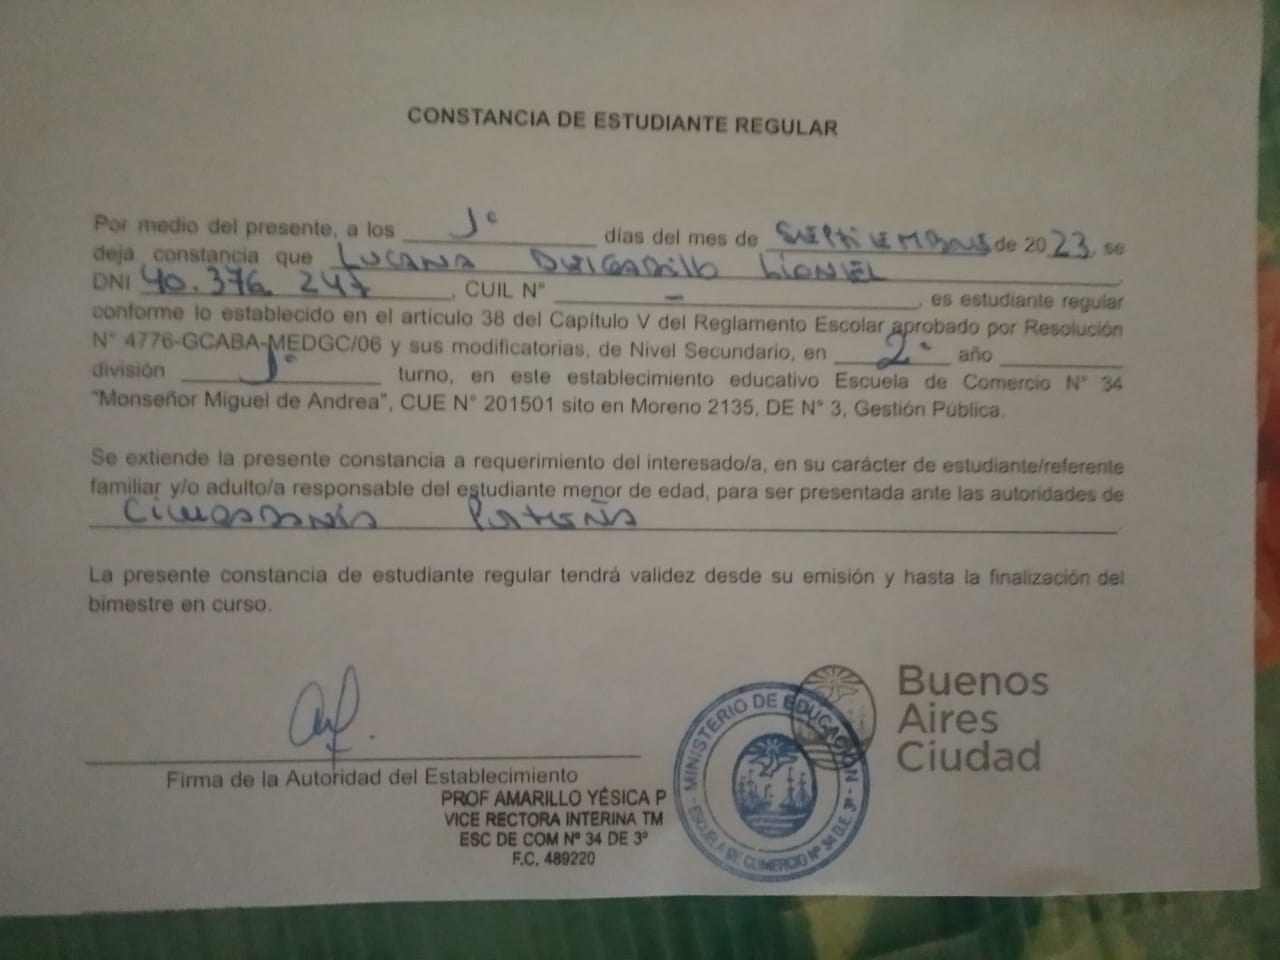 CONSTANCIA DE ESTUDIANTE REGULAR
Por medio del presente, a los 1° días del mes de Septiembre de 2023, se
deja constancia que Lucana Delgadillo Lionel,
DNI 40.376 247, CUIL N° -, es estudiante regular
conforme lo establecido en el artículo 38 del Capítulo V del Reglamento Escolar aprobado por Resolución
N° 4776-GCABA-MEDGC/06 y sus modificatorias, de Nivel Secundario, en 2° año
división 1° turno, en este establecimiento educativo Escuela de Comercio N° 34
"Monseñor Miguel de Andrea", CUE N° 201501 sito en Moreno 2135, DE N° 3, Gestión Pública.
Se extiende la presente constancia a requerimiento del interesado/a, en su carácter de estudiante/referente
familiar y/o adulto/a responsable del estudiante menor de edad, para ser presentada ante las autoridades de
Ciudadanía Porteña
La presente constancia de estudiante regular tendrá validez desde su emisión y hasta la finalización del
bimestre en curso.
Firma de la Autoridad del Establecimiento
PROF AMARILLO YÉSICA P
VICE RECTORA INTERINA TM
ESC DE COM Nº 34 DE 3º
F.C. 489220
MINISTERIO DE EDUCACIÓN
ESCUELA DE COMERCIO Nº 34 D.E. 3º
Buenos
Aires
Ciudad